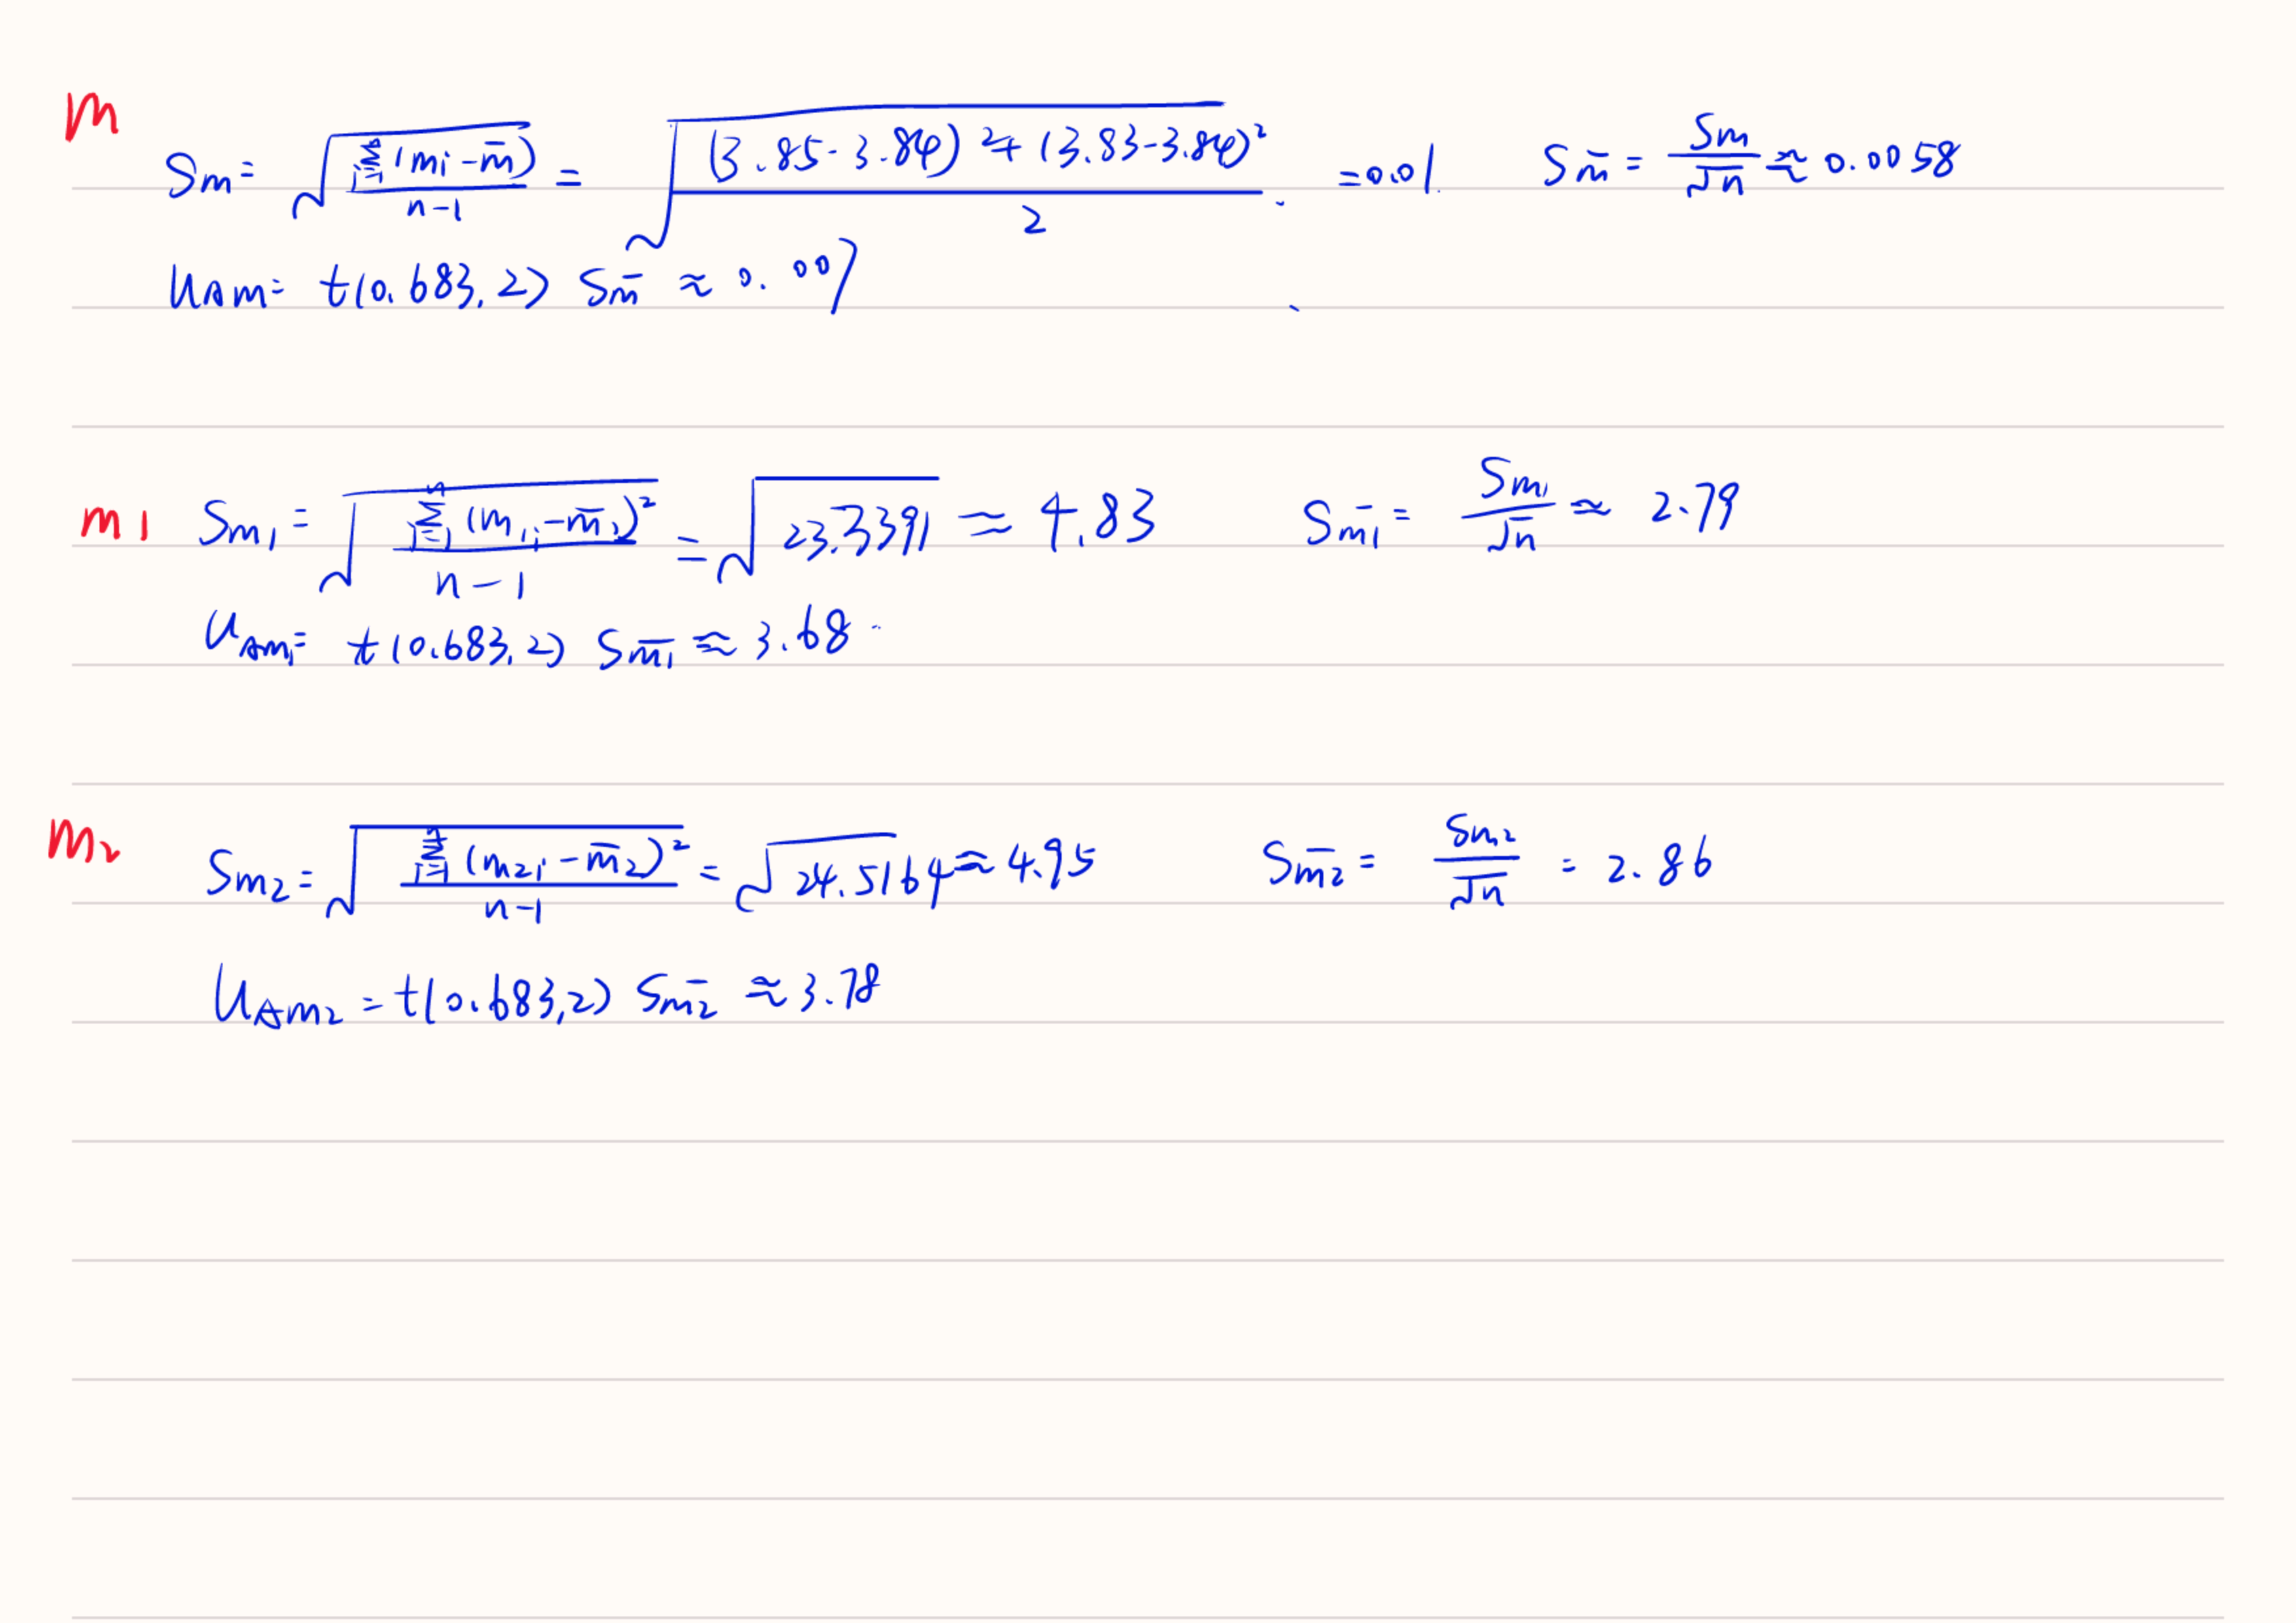 m
Sm = √(∑ᵢ₌₁ⁿ (mᵢ - m̄) / (n-1)) = √(((3.85-3.84)² + (3.83-3.84)²) / 2) = 0.01 Sm̄ = Sm/√n ≈ 0.0058
UAm = t(0.683, 2) Sm̄ ≈ 0.007
m1 Sm₁ = √(∑ᵢ₌₁ⁿ (m₁ᵢ - m̄₁)² / (n-1)) = √23.3391 ≈ 4.83 Sm̄₁ = Sm₁/√n ≈ 2.79
UAm₁ = t(0.683, 2) Sm̄₁ ≈ 3.68
m₂ Sm₂ = √(∑ᵢ₌₁ⁿ (m₂ᵢ - m̄₂)² / (n-1)) = √24.5164 ≈ 4.95 Sm̄₂ = Sm₂/√n = 2.86
UAm₂ = t(0.683, 2) Sm̄₂ ≈ 3.78